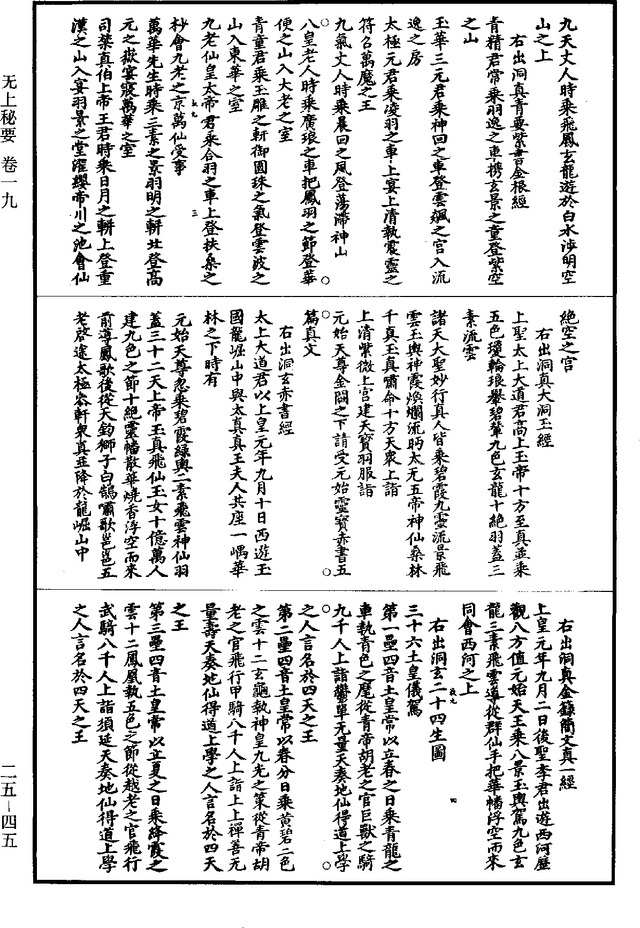 九天丈人時乘飛鳳玄龍遊於白水涉明空
山之上
右出洞真青要紫書金根經
青精君常乘羽逸之車携玄景之童登紫空
之山
玉華三元君乘神回之車登雲飈之宮入流
逸之房
太極元君乘凌羽之車上宴上清執震靈之
符召萬魔之王
九氣丈人時乘晨回之風登蕩滯神山
八皇老人時乘廣琅之車把鳳羽之節登華
便之山入大老之室
青童君乘玉雕之軒御圓珠之氣登雲波之
山入東華之室
九老仙皇太帝君乘合羽之車上登扶桑之
杪會九老之京萬仙受事
萬華先生時乘三素之景羽明之軿北登高
元之嶽宴寢萬華之室
司禁真伯上帝王君時乘日月之軿上登重
漢之山入宴羽景之堂濯纓帝川之池會仙
絕空之宮
右出洞真大洞玉經
上聖太上大道君高上玉帝十方至真並乘
五色瓊輪琅轝碧輦九色玄龍十絕羽蓋三
素流雲
諸天大聖妙行真人皆乘碧霞九靈流景飛
雲玉輿神霞煥爛流眄太无五帝神仙桑林
千真玉真嘯命十方天衆上詣
上清紫微上宮建天寶羽服詣
元始天尊金闕之下請受元始靈寶赤書五
篇真文
右出洞玄赤書經
太上大道君以上皇元年九月十日西遊玉
國龍崛山中與太真真王夫人共座一嵎華
林之下時有
元始天尊忽乘碧霞綠輿二素飛雲神仙羽
蓋三十二天上帝玉真飛仙玉女十億萬人
建九色之節十絕靈幡散華燒香浮空而來
前導鳳歌後從天鈞獅子白鵠嘯歌邕邕五
老啓途太極參軒衆真並降於龍崛山中
右出洞真金籙簡文真一經
上皇元年九月二日後聖李君出遊西河歷
觀八方值元始天王乘八景玉輿駕九色玄
龍三素飛雲導從群仙手把華幡浮空而來
同會西河之上
右出洞玄二十四生圖
三十六土皇儀駕
第一壘四音土皇常以立春之日乘青龍之
車執青色之麾從青帝胡老之官巨獸之騎
九千人上詣鬱單无量天奏地仙得道上學
之人言名於四天之王
第二壘四音土皇常以春分日乘黄碧二色
之雲十二玄龜執神皇九光之策從青帝胡
老之官飛行甲騎八千人上詣上上禪善无
量壽天奏地仙得道上學之人言名於四天
之王
第三壘四音土皇常以立夏之日乘絳霞之
雲十二鳳凰執五色之節從越老之官飛行
武騎八千人上詣須延天奏地仙得道上學
之人言名於四天之王
三
四
无上秘要 卷一九
二五－四五